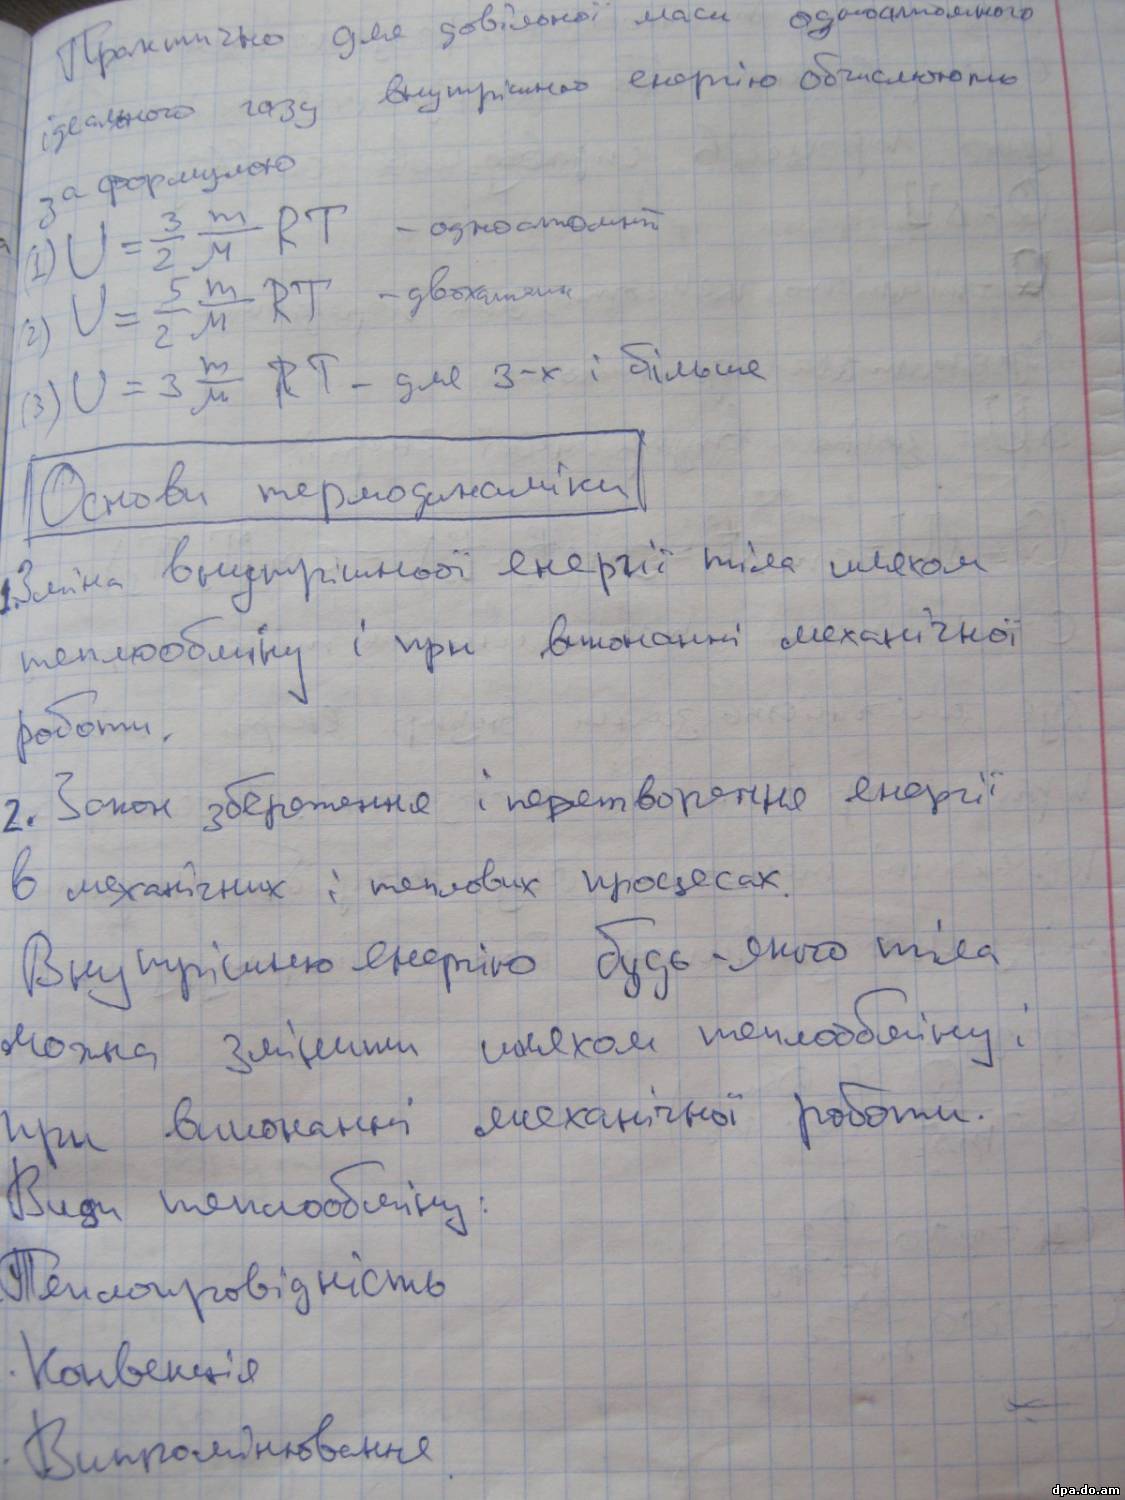 Практично для довільної маси одноатомного
ідеального газу внутрішню енергію обчислюють
за формулою
(1) U = 3/2 m/M RT - одноатомні
(2) U = 5/2 m/M RT - двохатомн
(3) U = 3 m/M RT - для 3-х і більше
Основи термодинаміки
1. Зміна внутрішньої енергії тіла шляхом
теплообміну і при виконанні механічної
роботи.
2. Закон збереження і перетворення енергії
в механічних і теплових процесах.
Внутрішню енергію будь-якого тіла
можна змінити шляхом теплообміну і
при виконанні механічної роботи.
Види теплообміну:
Теплопровідність
· Конвекція
· Випромінювання.
dpa.do.am